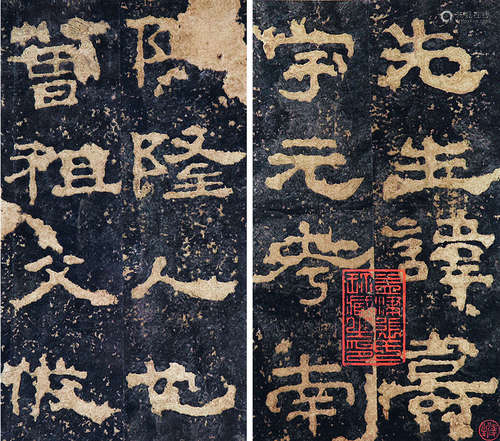 先生諱壽
字元考南
隆人也
曾祖父攸